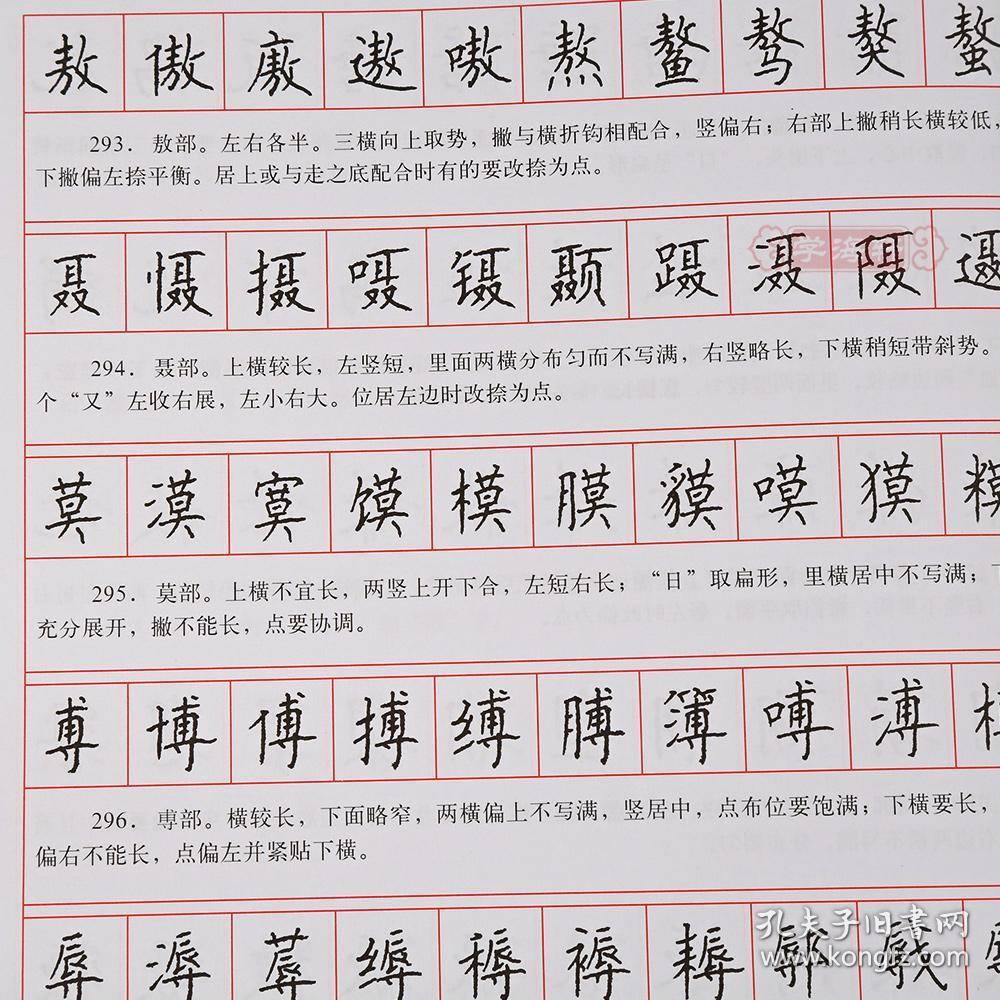 敖 傲 廒 遨 嗷 熬 鳌 骜 獒 螯
293．敖部。左右各半。三横向上取势，撇与横折钩相配合，竖偏右；右部上撇稍长横较低，
下撇偏左捺平衡。居上或与走之底配合时有的要改捺为点。
聂 慑 摄 嗫 镊 颞 蹑 滠
294．聂部。上横较长，左竖短，里面两横分布匀而不写满，右竖略长，下横稍短带斜势。
个“又”左收右展，左小右大。位居左边时改捺为点。
莫 漠 寞 馍 模 膜 貘 嗼 獏 糢
295．莫部。上横不宜长，两竖上开下合，左短右长；“日”取扁形，里横居中不写满；
充分展开，撇不能长，点要协调。
尃 博 傅 搏 缚 膊 簿 嘭 溥
296．尃部。横较长，下面略窄，两横偏上不写满，竖居中，点布位要饱满；下横要长，
偏右不能长，点偏左并紧贴下横。
辱 溽 蓐 缛 褥 耨
学海轩
孔夫子旧书网
kongfz.com